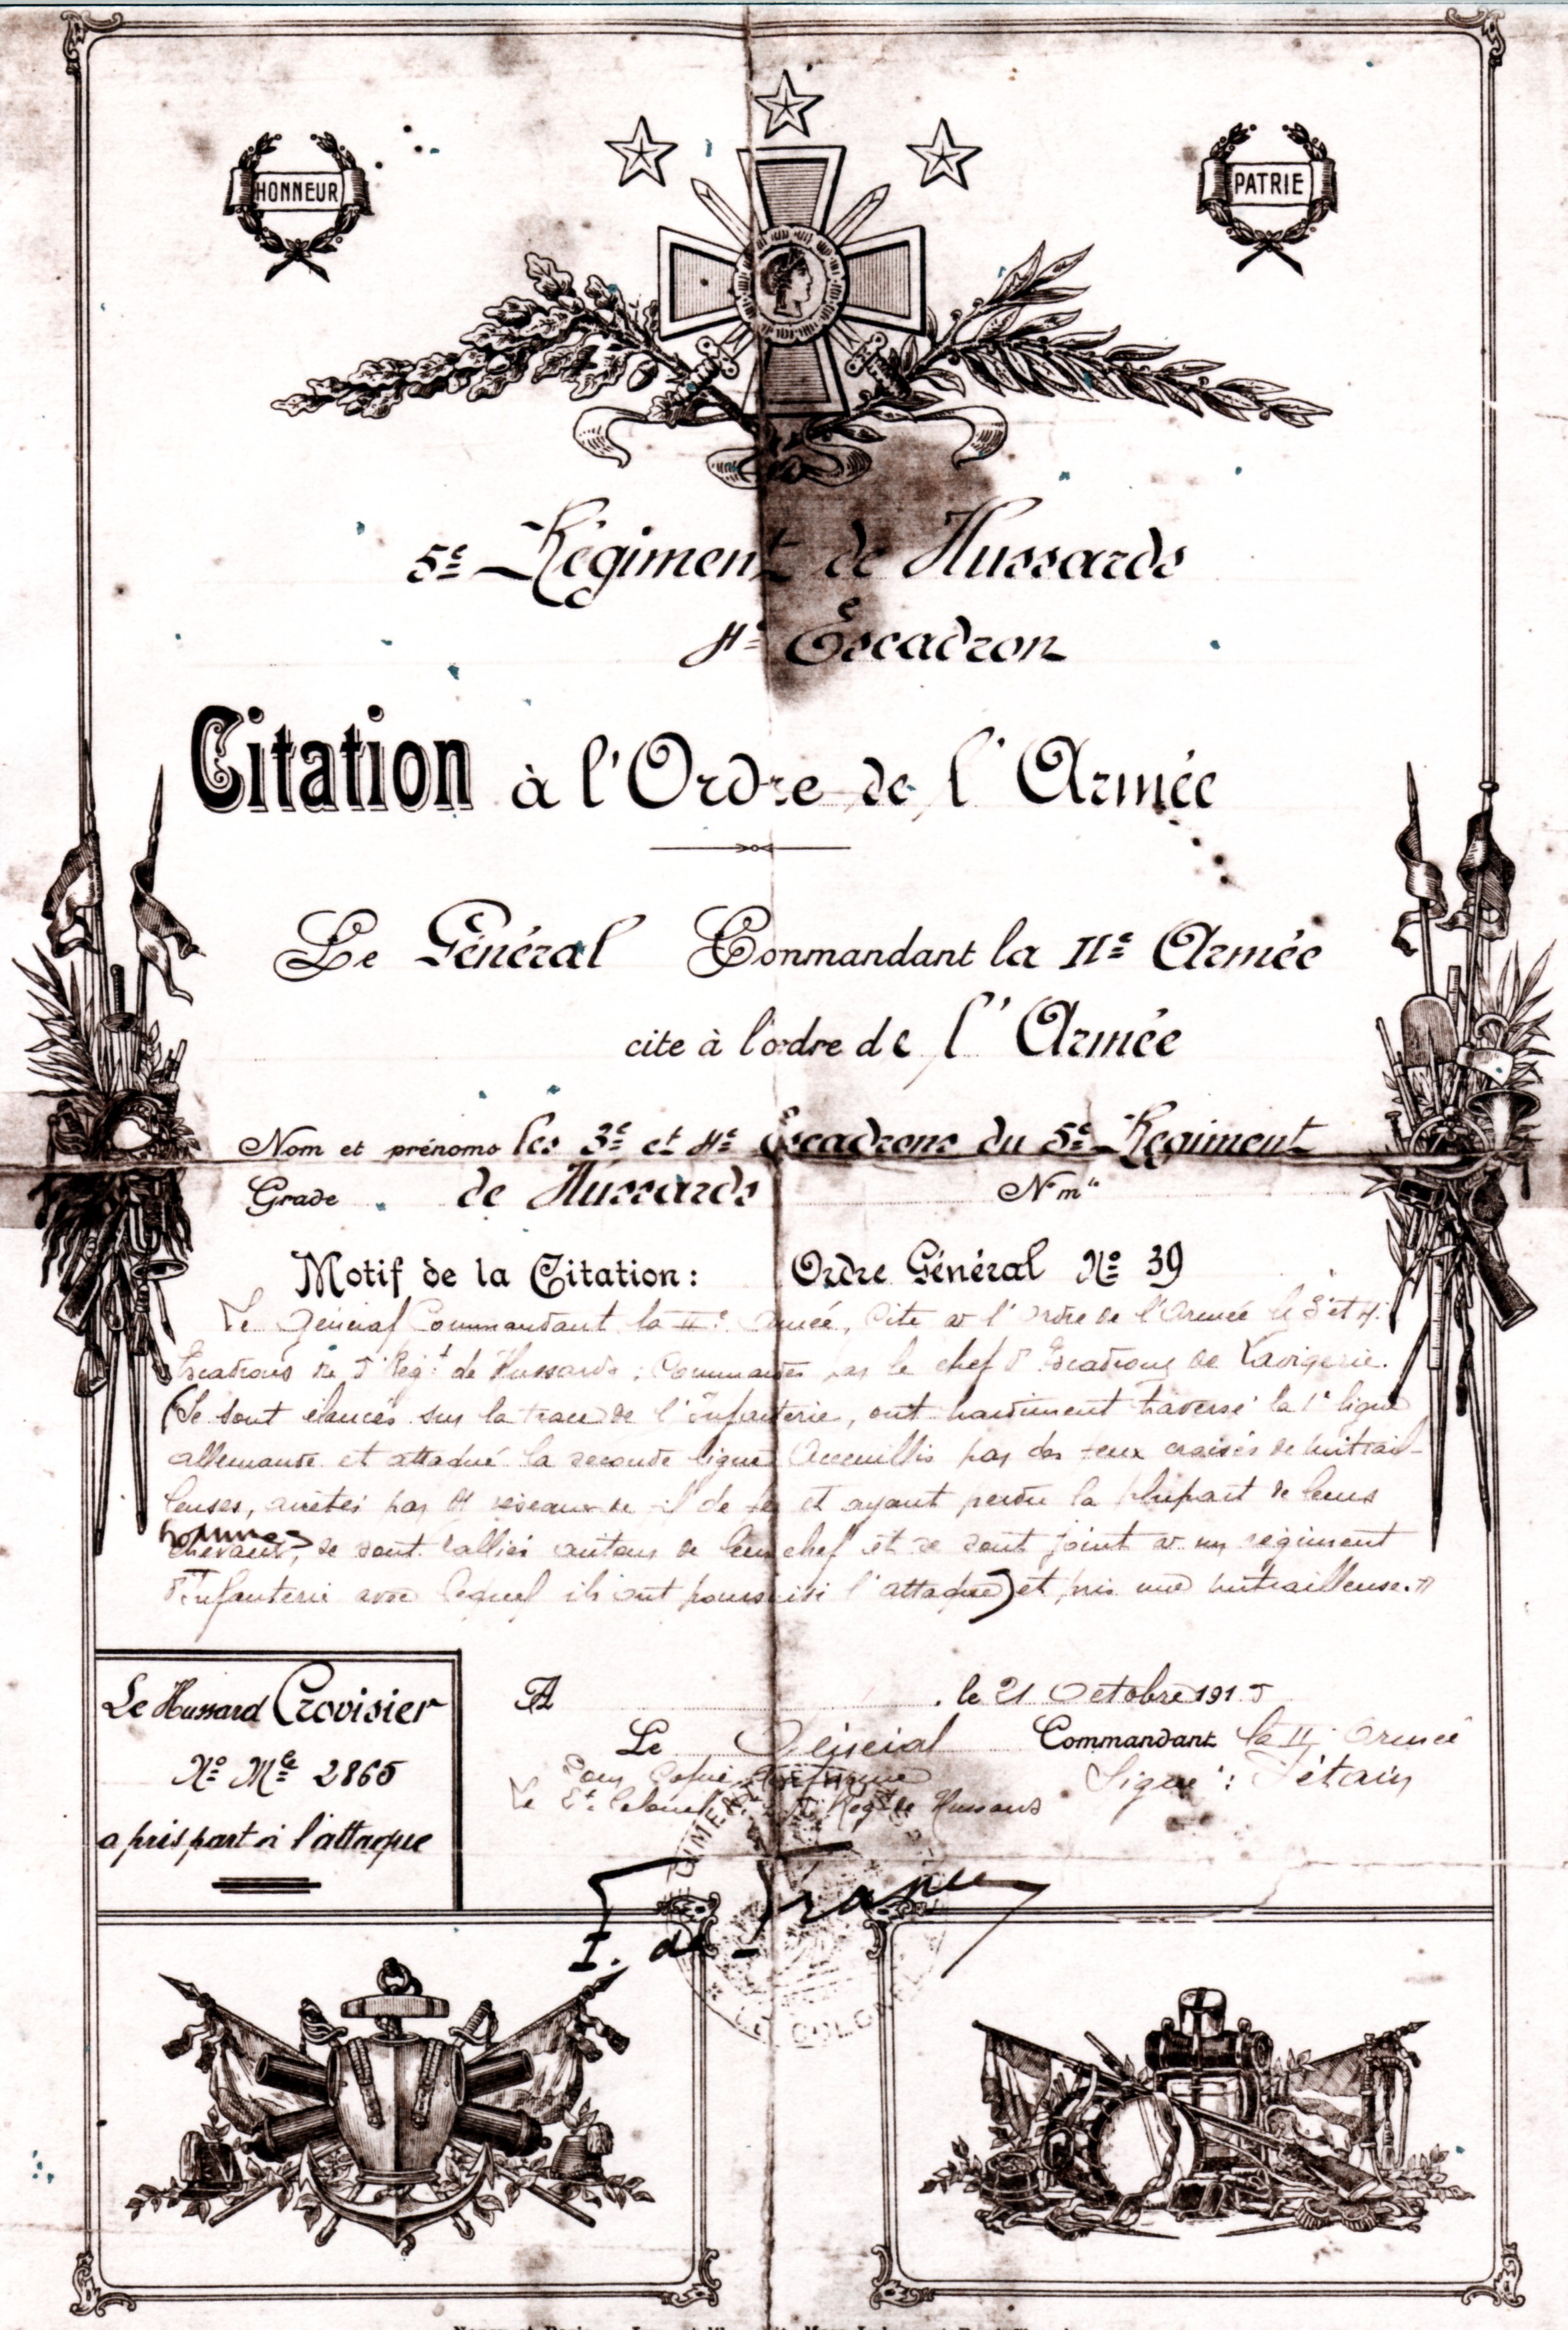 HONNEUR
PATRIE
5e Régiment de Hussards
4e Escadron
Citation à l'Ordre de l'Armée
Le Général Commandant la IIe Armée
cite à l'ordre de l'Armée
Nom et prénoms les 3e et 4e Escadrons du 5e Régiment
Grade de Hussards Nm le
Motif de la Citation: Ordre Général No 39
Le Général Commandant la IIe Armée, Cite à l'Ordre de l'Armée les 3e et 4e
Escadrons du 5e Régt de Hussards; Commandés par le chef d'Escadrons de Lavigerie.
(Se sont élancés sur la trace de l'Infanterie, ont hardiment traversé la 1e ligne
allemande et attaqué la seconde ligne Accueillis par des feux croisés de mitrail-
leuses, arrêtés par des réseaux de fil de fer et ayant perdu la plupart de leurs
hommes
chevaux, se sont ralliés autour de leur chef et se sont joint à un régiment
d'Infanterie avec lequel ils ont poursuivi l'attaque) et pris une mitrailleuse."
Le Hussard Crovisier
No Mle 2865
a pris part à l'attaque
A , le 21 Octobre 1915
Le Général Commandant la IIe Armée
Pour Copie Conforme Signé: Pétain
Le Lt Colonel Régt de Hussards